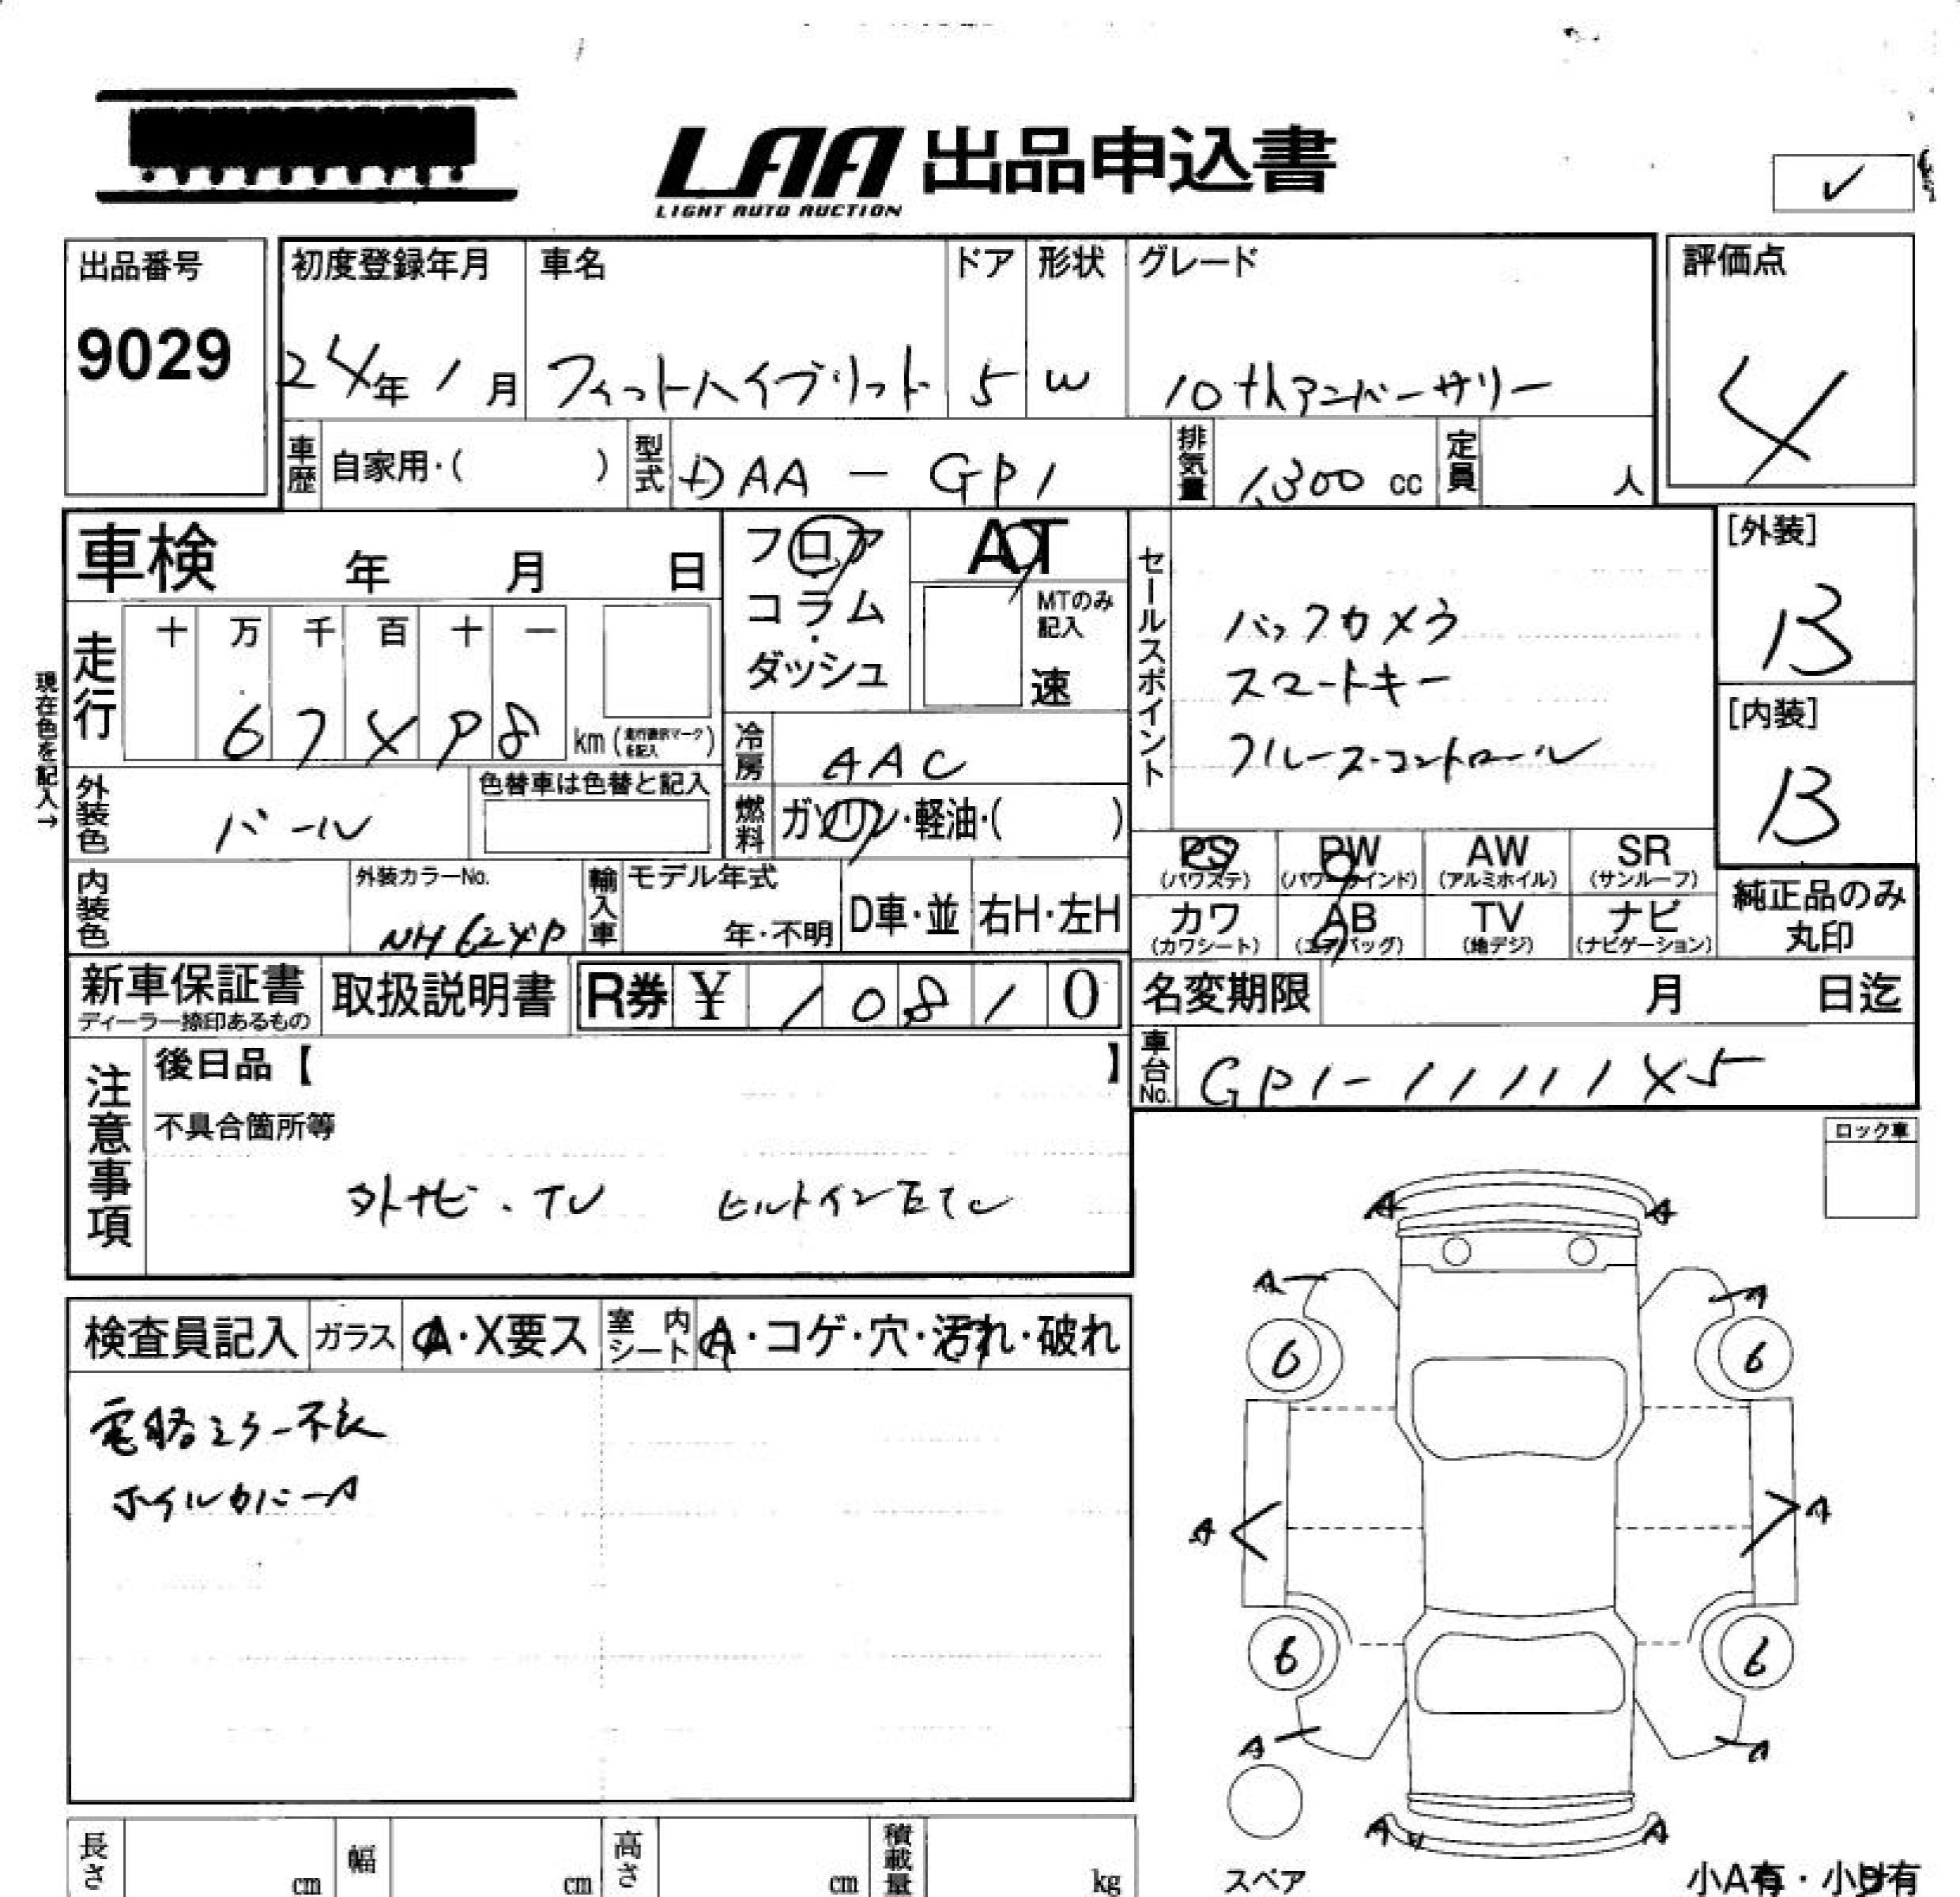 LAA 出品申込書
LIGHT AUTO AUCTION
✓
出品番号
9029
初度登録年月
24年 1月
車名
フィットハイブリット
ドア
5
形状
W
グレード
10thアニバーサリー
評価点
4
車歴
自家用・( )
型式
DAA - GP1
排気量
1,300 cc
定員
人
車検 年 月 日
フロア
・
コラム
・
ダッシュ
AT
MTのみ
記入
速
セールスポイント
バックカメラ
スマートキー
クルーズ・コントロール
[外装]
B
[内装]
B
現在色を記入→
走行
十 万 千 百 十 一
6 7 4 9 8 km
冷房
AAC
燃料
ガソリン・軽油・( )
外装色
パール
色替車は色替と記入
内装色
外装カラーNo.
NH624P
輸入車
モデル年式
年・不明
D車・並
右H・左H
PS
(パワステ)
PW
(パワーウインド)
AW
(アルミホイル)
SR
(サンルーフ)
カワ
(カワシート)
AB
(エアバッグ)
TV
(地デジ)
ナビ
(ナビゲーション)
純正品のみ
丸印
新車保証書
ディーラー捺印あるもの
取扱説明書
R券 ¥ 1 0 8 1 0
名変期限 月 日迄
車台No.
GP1-1111145
注意事項
後日品【 】
不具合箇所等
外ナビ・TV ビルトインETC
ロック車
検査員記入
ガラス
A・X要ス
室内
シート
A・コゲ・穴・汚れ・破れ
電格ミラー不良
ホイルカバーA
A A
A A
6 6
A A
6 6
A A
A A
スペア
小A有・小U有
長さ cm
幅 cm
高さ cm
積載量 kg